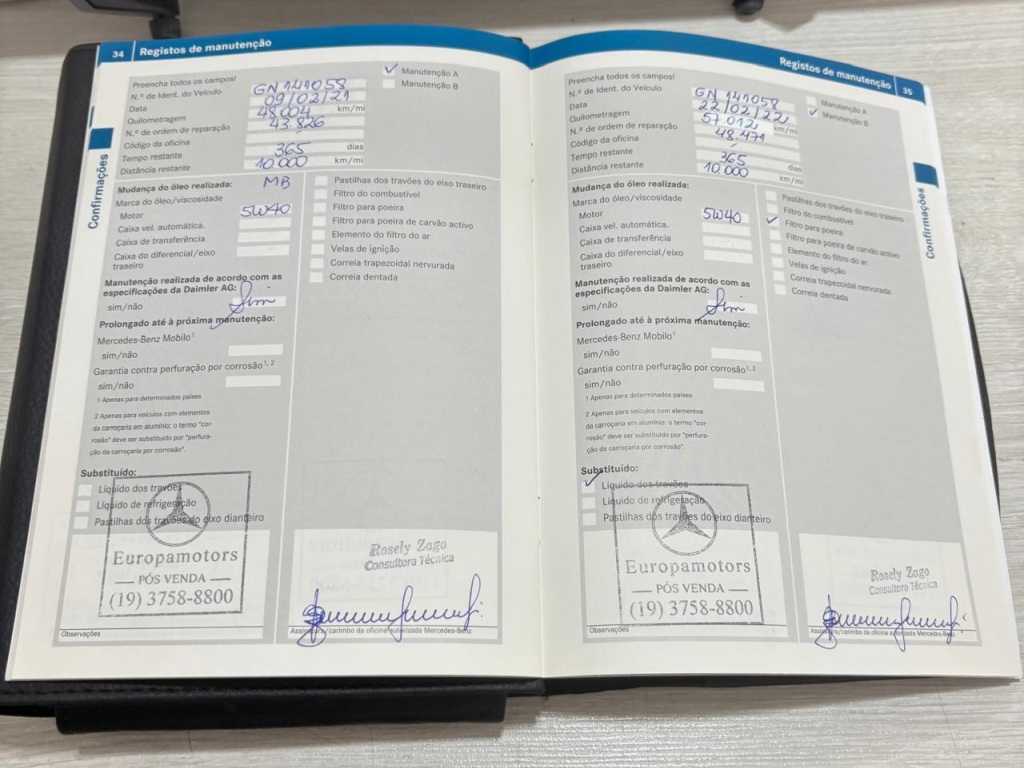 34 Registos de manutenção
Preencha todos os campos!
N.º de Ident. do Veículo GN 141058
Data 09/02/21
Quilometragem 48.004 km/mi
N.º de ordem de reparação 43.826
Código da oficina
Tempo restante 365 dias
Distância restante 10 000 km/mi
Manutenção A
Manutenção B
Confirmações
Mudança do óleo realizada:
Marca do óleo/viscosidade MB
Motor 5W40
Caixa vel. automática.
Caixa de transferência
Caixa do diferencial/eixo
traseiro
Manutenção realizada de acordo com as
especificações da Daimler AG:
sim/não Sim
Prolongado até à próxima manutenção:
Mercedes-Benz Mobilo¹
sim/não
Garantia contra perfuração por corrosão¹, ²
sim/não
1 Apenas para determinados países
2 Apenas para veículos com elementos
da carroçaria em alumínio: o termo "cor-
rosão" deve ser substituído por "perfura-
ção da carroçaria por corrosão".
Substituído:
Líquido dos travões
Líquido de refrigeração
Pastilhas dos travões do eixo dianteiro
Europamotors
PÓS VENDA
(19) 3758-8800
Observações
Pastilhas dos travões do eixo traseiro
Filtro do combustível
Filtro para poeira
Filtro para poeira de carvão activo
Elemento do filtro do ar
Velas de ignição
Correia trapezoidal nervurada
Correia dentada
Rosely Zago
Consultora Técnica
Assinatura/carimbo da oficina autorizada Mercedes-Benz
Registos de manutenção 35
Preencha todos os campos!
N.º de Ident. do Veículo GN 141058
Data 22/02/22
Quilometragem 57.012 km/mi
N.º de ordem de reparação 48.471
Código da oficina
Tempo restante 365 dias
Distância restante 10.000 km/mi
Manutenção A
Manutenção B
Confirmações
Mudança do óleo realizada:
Marca do óleo/viscosidade
Motor 5W40
Caixa vel. automática.
Caixa de transferência
Caixa do diferencial/eixo
traseiro
Manutenção realizada de acordo com as
especificações da Daimler AG:
sim/não Sim
Prolongado até à próxima manutenção:
Mercedes-Benz Mobilo¹
sim/não
Garantia contra perfuração por corrosão¹, ²
sim/não
1 Apenas para determinados países
2 Apenas para veículos com elementos
da carroçaria em alumínio: o termo "cor-
rosão" deve ser substituído por "perfura-
ção da carroçaria por corrosão".
Substituído:
Líquido dos travões
Líquido de refrigeração
Pastilhas dos travões do eixo dianteiro
Europamotors
PÓS VENDA
(19) 3758-8800
Observações
Pastilhas dos travões do eixo traseiro
Filtro do combustível
Filtro para poeira
Filtro para poeira de carvão activo
Elemento do filtro do ar
Velas de ignição
Correia trapezoidal nervurada
Correia dentada
Rosely Zago
Consultora Técnica
Assinatura/carimbo da oficina autorizada Mercedes-Benz